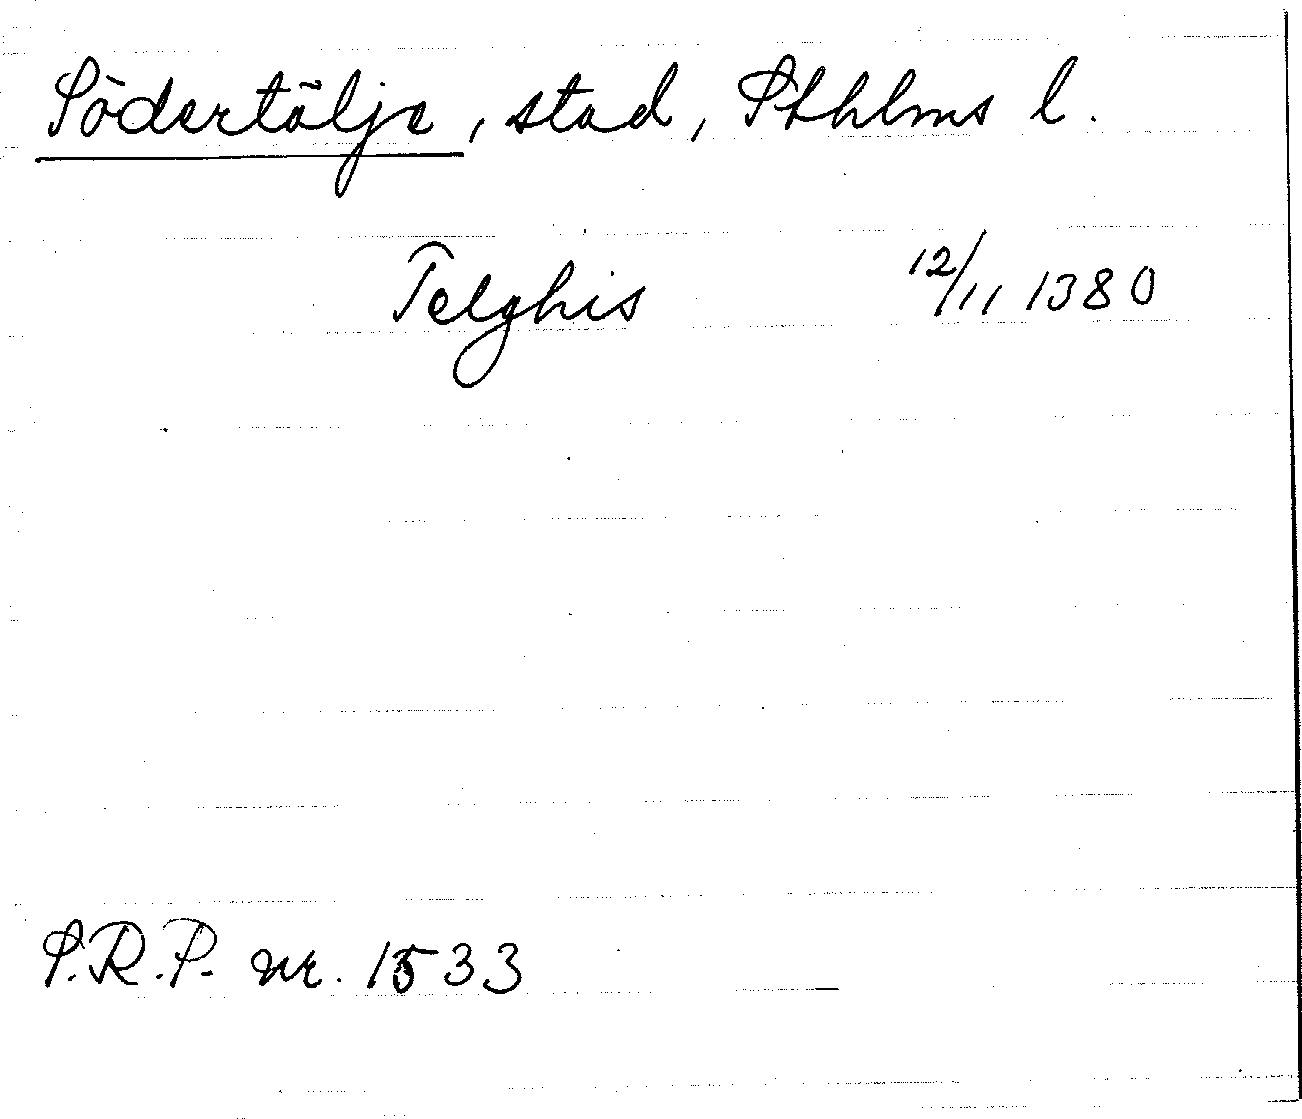 Södertälje, stad, Sthlms l.
Telghis 12/11 1380
S.R.P. nr. 1533